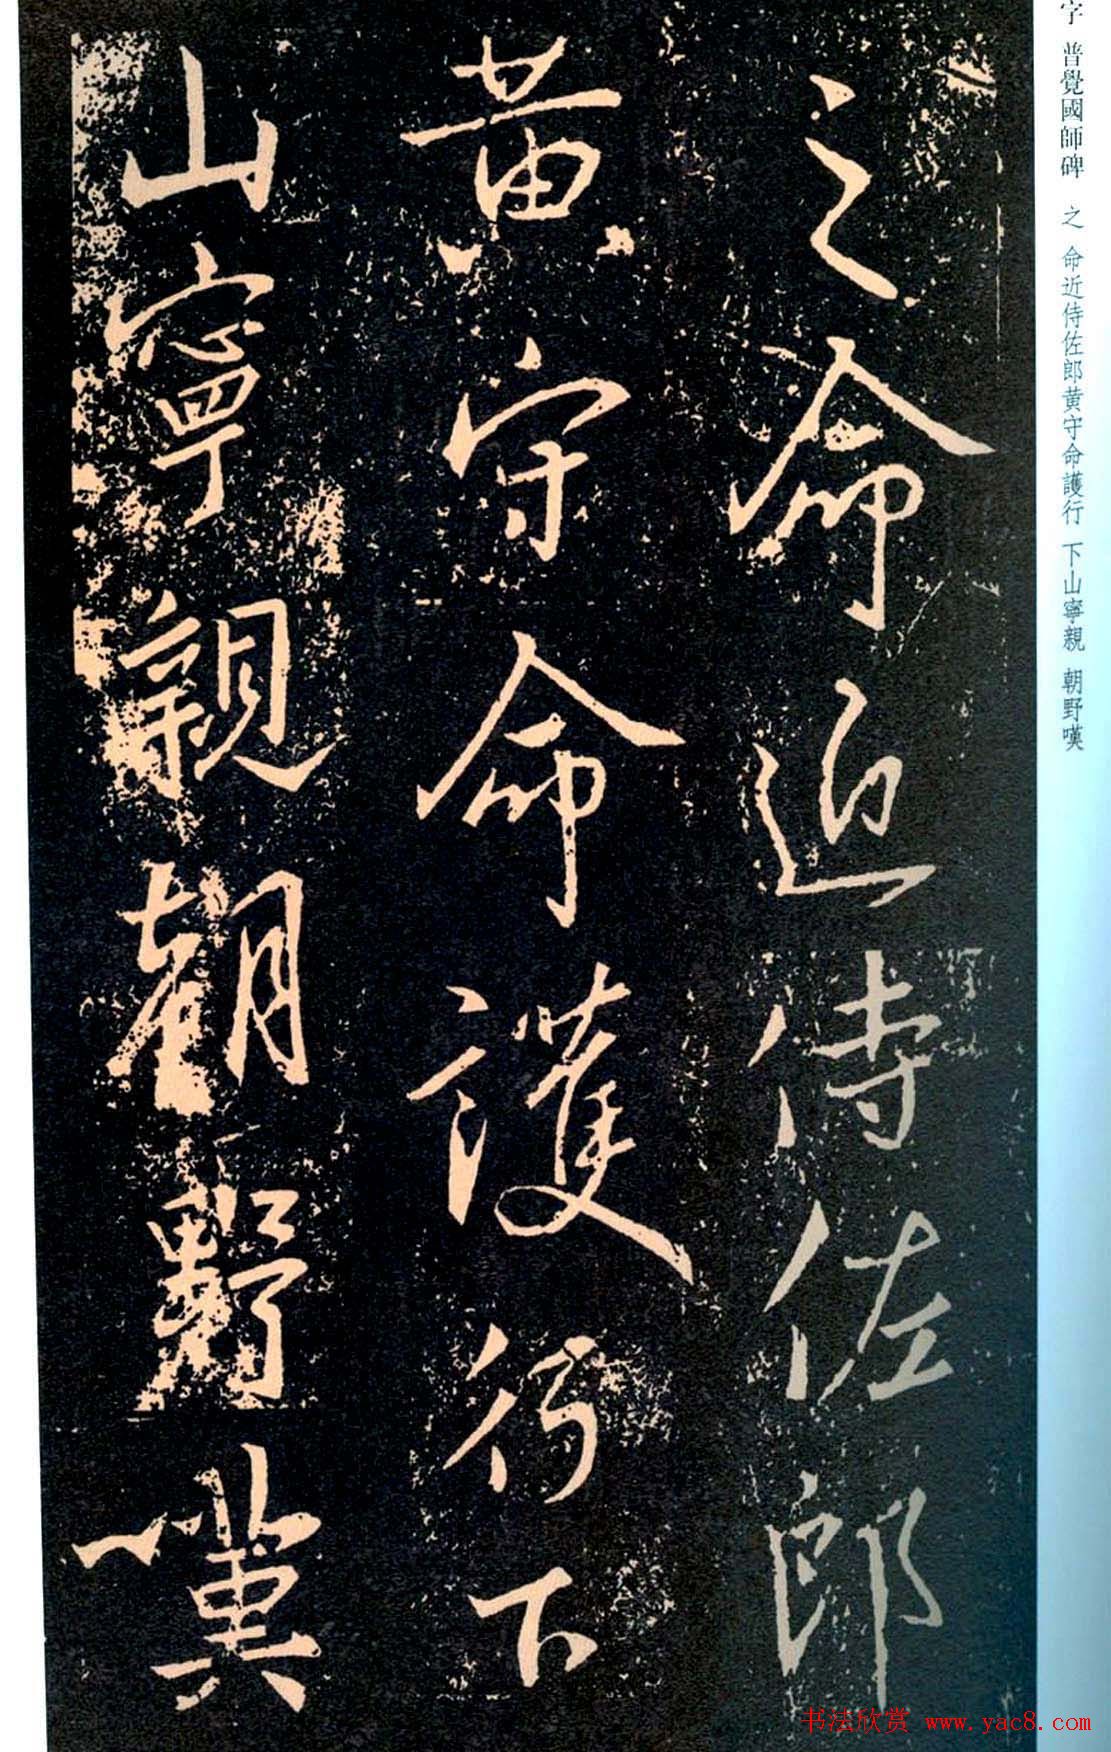 字 普覺國師碑 之 命近侍佐郎黄守命護行 下山寧親 朝野嘆
之命近侍佐郎
黄守命護行下
山寧親朝野嘆
书法欣赏 www.yac8.com